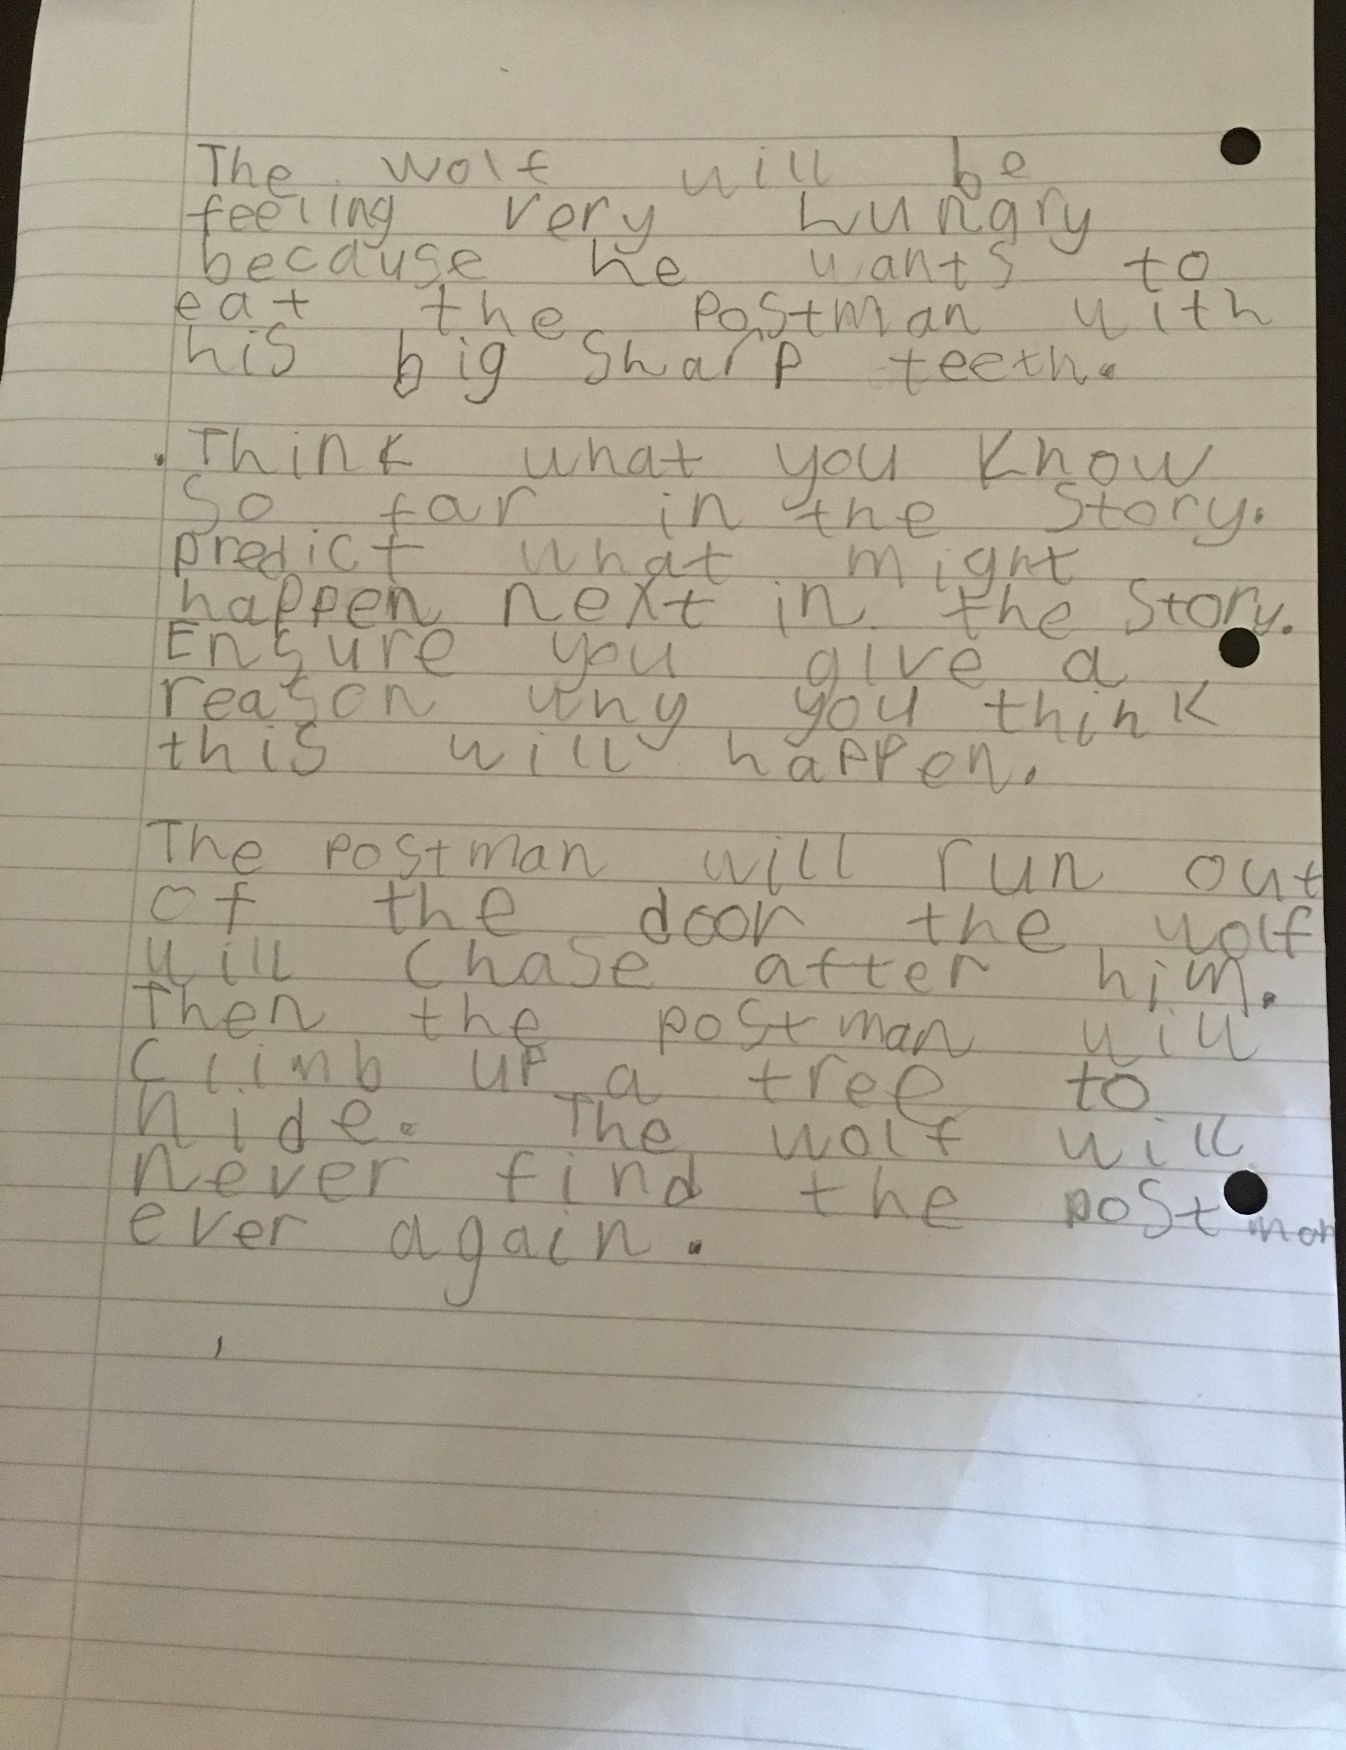 The wolf will be
feeling very hungry
because he wants to
eat the postman with
his big sharp teeth.
. Think what you know
So far in the Story.
predict what might
happen next in the Story.
Ensure you give a
reason why you think
this will happen.
The postman will run out
of the door the wolf
will chase after him.
Then the postman will
climb up a tree to
hide. The wolf will
never find the postman
ever again.